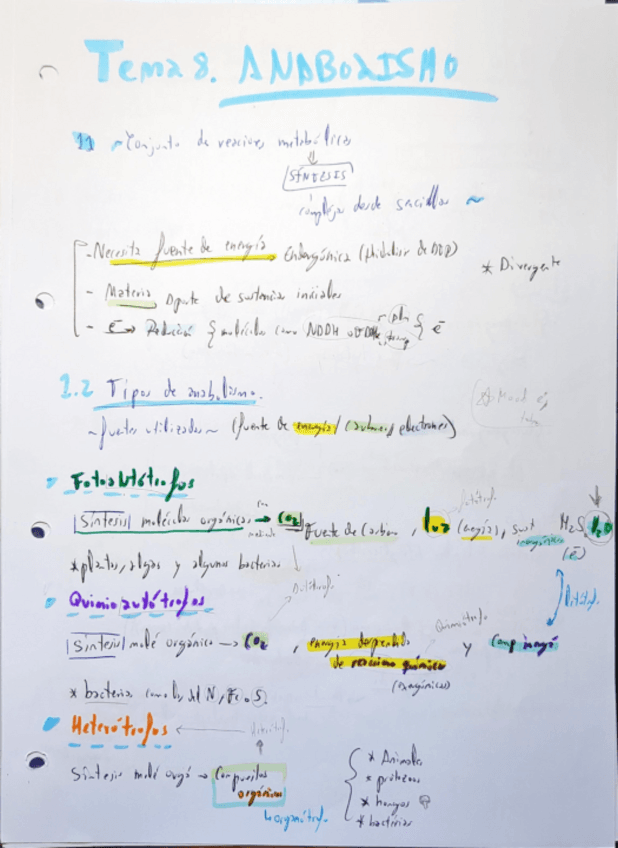 Tema 8. ANABOLISMO
1.1 ~ Conjunto de reacciones metabólicas
SÍNTESIS
complejas desde sencillas ~
- Necesita fuente de energía, Endergónica (Hidrólisis de ATP)
* Divergente
- Materia, aporte de sustancias iniciales
- ē → Reducción { moléculas como NADH o } ē
1.2 Tipos de anabolismo.
~ fuentes utilizadas ~ (fuente de energía / carbono / electrones)
Fotoautótrofos
Síntesis moléculas orgánicas → CO2 fuente de carbono, luz (energía), sust inorgánicas H2S, H2O (ē)
* plantas, algas y algunas bacterias
Autótrofo
Quimioautótrofos
Litótrofo
Quimiótrofo
Síntesis molé orgánica → CO2, energía desprendida de reacciones químicas y comp inorgá
(exergónicas)
* bacterias como las del N, Fe o S.
Heterótrofos ←
Síntesis molé orgá → Compuestos orgánicos
↳ organótrof.
* Animales
* protozoos
* hongos
* bacterias